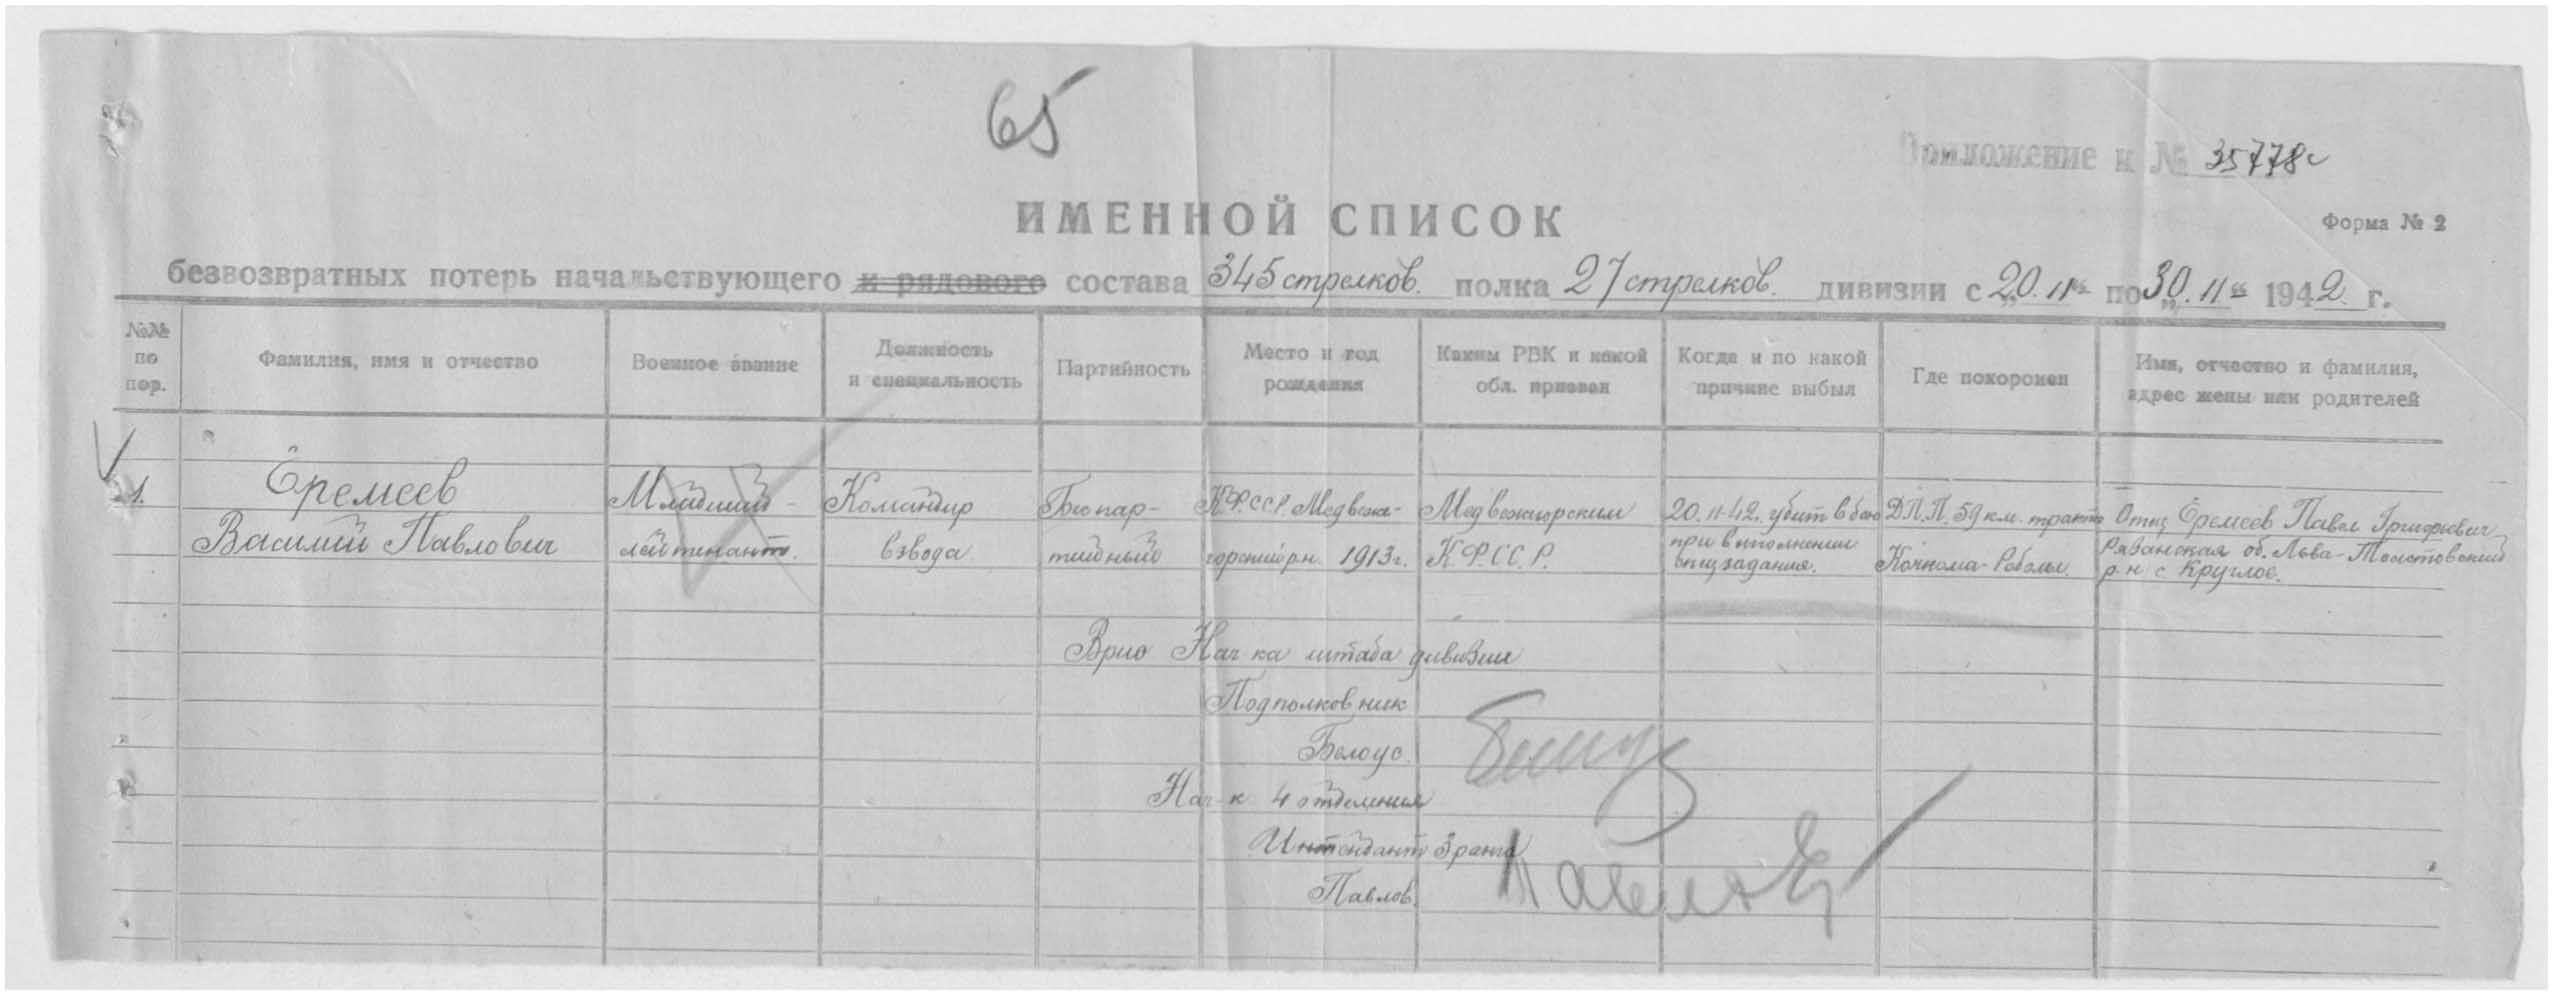 65
Приложение к № 35778с
ИМЕННОЙ СПИСОК
Форма № 2
безвозвратных потерь начальствующего и рядового состава 345 стрелков. полка 27 стрелков. дивизии с „20.11“ по „30.11“ 1942 г.
№№ по пор.
Фамилия, имя и отчество
Военное звание
Должность и специальность
Партийность
Место и год рождения
Каким РВК и какой обл. призван
Когда и по какой причине выбыл
Где похоронен
Имя, отчество и фамилия, адрес жены или родителей
1.
Еремеев
Василий Павлович
Младший
лейтенант.
Командир
взвода
Беспар-
тийный
К.Ф.ССР. Медвежье-
горский р.н. 1913 г.
Медвежьегорским
К.Ф.С.С.Р.
20.11.42. убит в бою
при выполнении
спецзадания.
Д.П.П. 59 км. тракта
Кочкома-Реболы.
Отец Еремеев Павел Григорьевич
Рязанская об. Льва-Толстовский
р.н с Круглое.
Врио Нач-ка штаба дивизии
Подполковник
Белоус.
Нач-к 4 отделения
Интендант 3 ранга
Павлов.